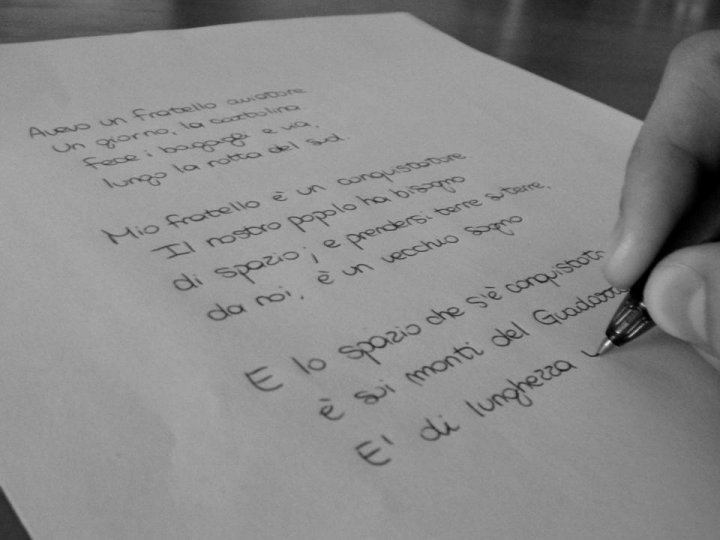 Avevo un fratello aviatore
un giorno, la cartolina
fece i bagagli e via,
lungo la rotta del sud.
Mio fratello è un conquistatore
Il nostro popolo ha bisogno
di spazio; e prendersi terre su terre,
da noi, è un vecchio sogno
E lo spazio che s'è conquistato
è sui monti del
E' di lunghezza